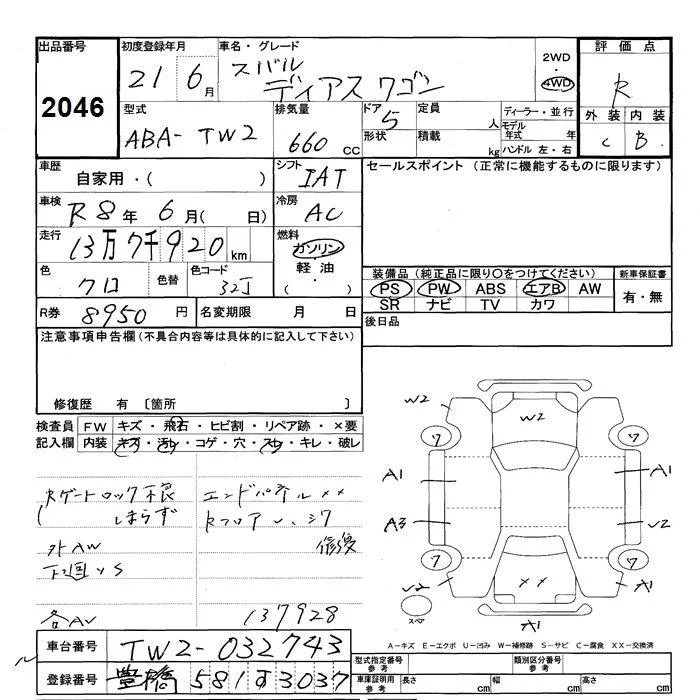 出品番号 初度登録年月 車名・グレード 2WD ・ 4WD 評価点
2046
21 6月 スバル ディアスワゴン R
外装 内装
C B
型式 排気量 ドア 定員 人 ディーラー・並行
モデル年式 年
ABA-TW2 660cc 5 形状 積載 kg ハンドル 左・右
車歴 自家用・( ) シフト IAT セールスポイント (正常に機能するものに限ります)
車検 R8年 6月( 日) 冷房 AC
走行 13万7千920km 燃料 ガソリン・軽油・( )
色 クロ 色替 色コード 32J
装備品(純正品に限り○をつけてください) 新車保証書
PS PW ABS エアB AW 有・無
SR ナビ TV カワ
R券 8950円 名変期限 月 日 後日品
注意事項申告欄(不具合内容等は具体的に記入して下さい)
修復歴 有 〔箇所 〕
検査員記入欄 FW キズ・飛石・ヒビ割・リペア跡・×要
内装 キズ・汚レ・コゲ・穴・スレ・キレ・破レ
Rゲートロック不良 エンドパネル××
しまらず Rフロア
修復
外AW
下廻りS
各AU 137928
W2 W2
ワ ワ
A1 A1
A3 U2
ワ ワ
U2 ×× A1
スペア A1
A-キズ E-エクボ U-凹み W-補修跡 S-サビ C-腐食 XX-交換済
車台番号 TW2-032743
登録番号 豊橋 581す3037
型式指定番号 参考 類別区分番号 参考
車庫証明用 参考 長さ cm 幅 cm 高さ cm